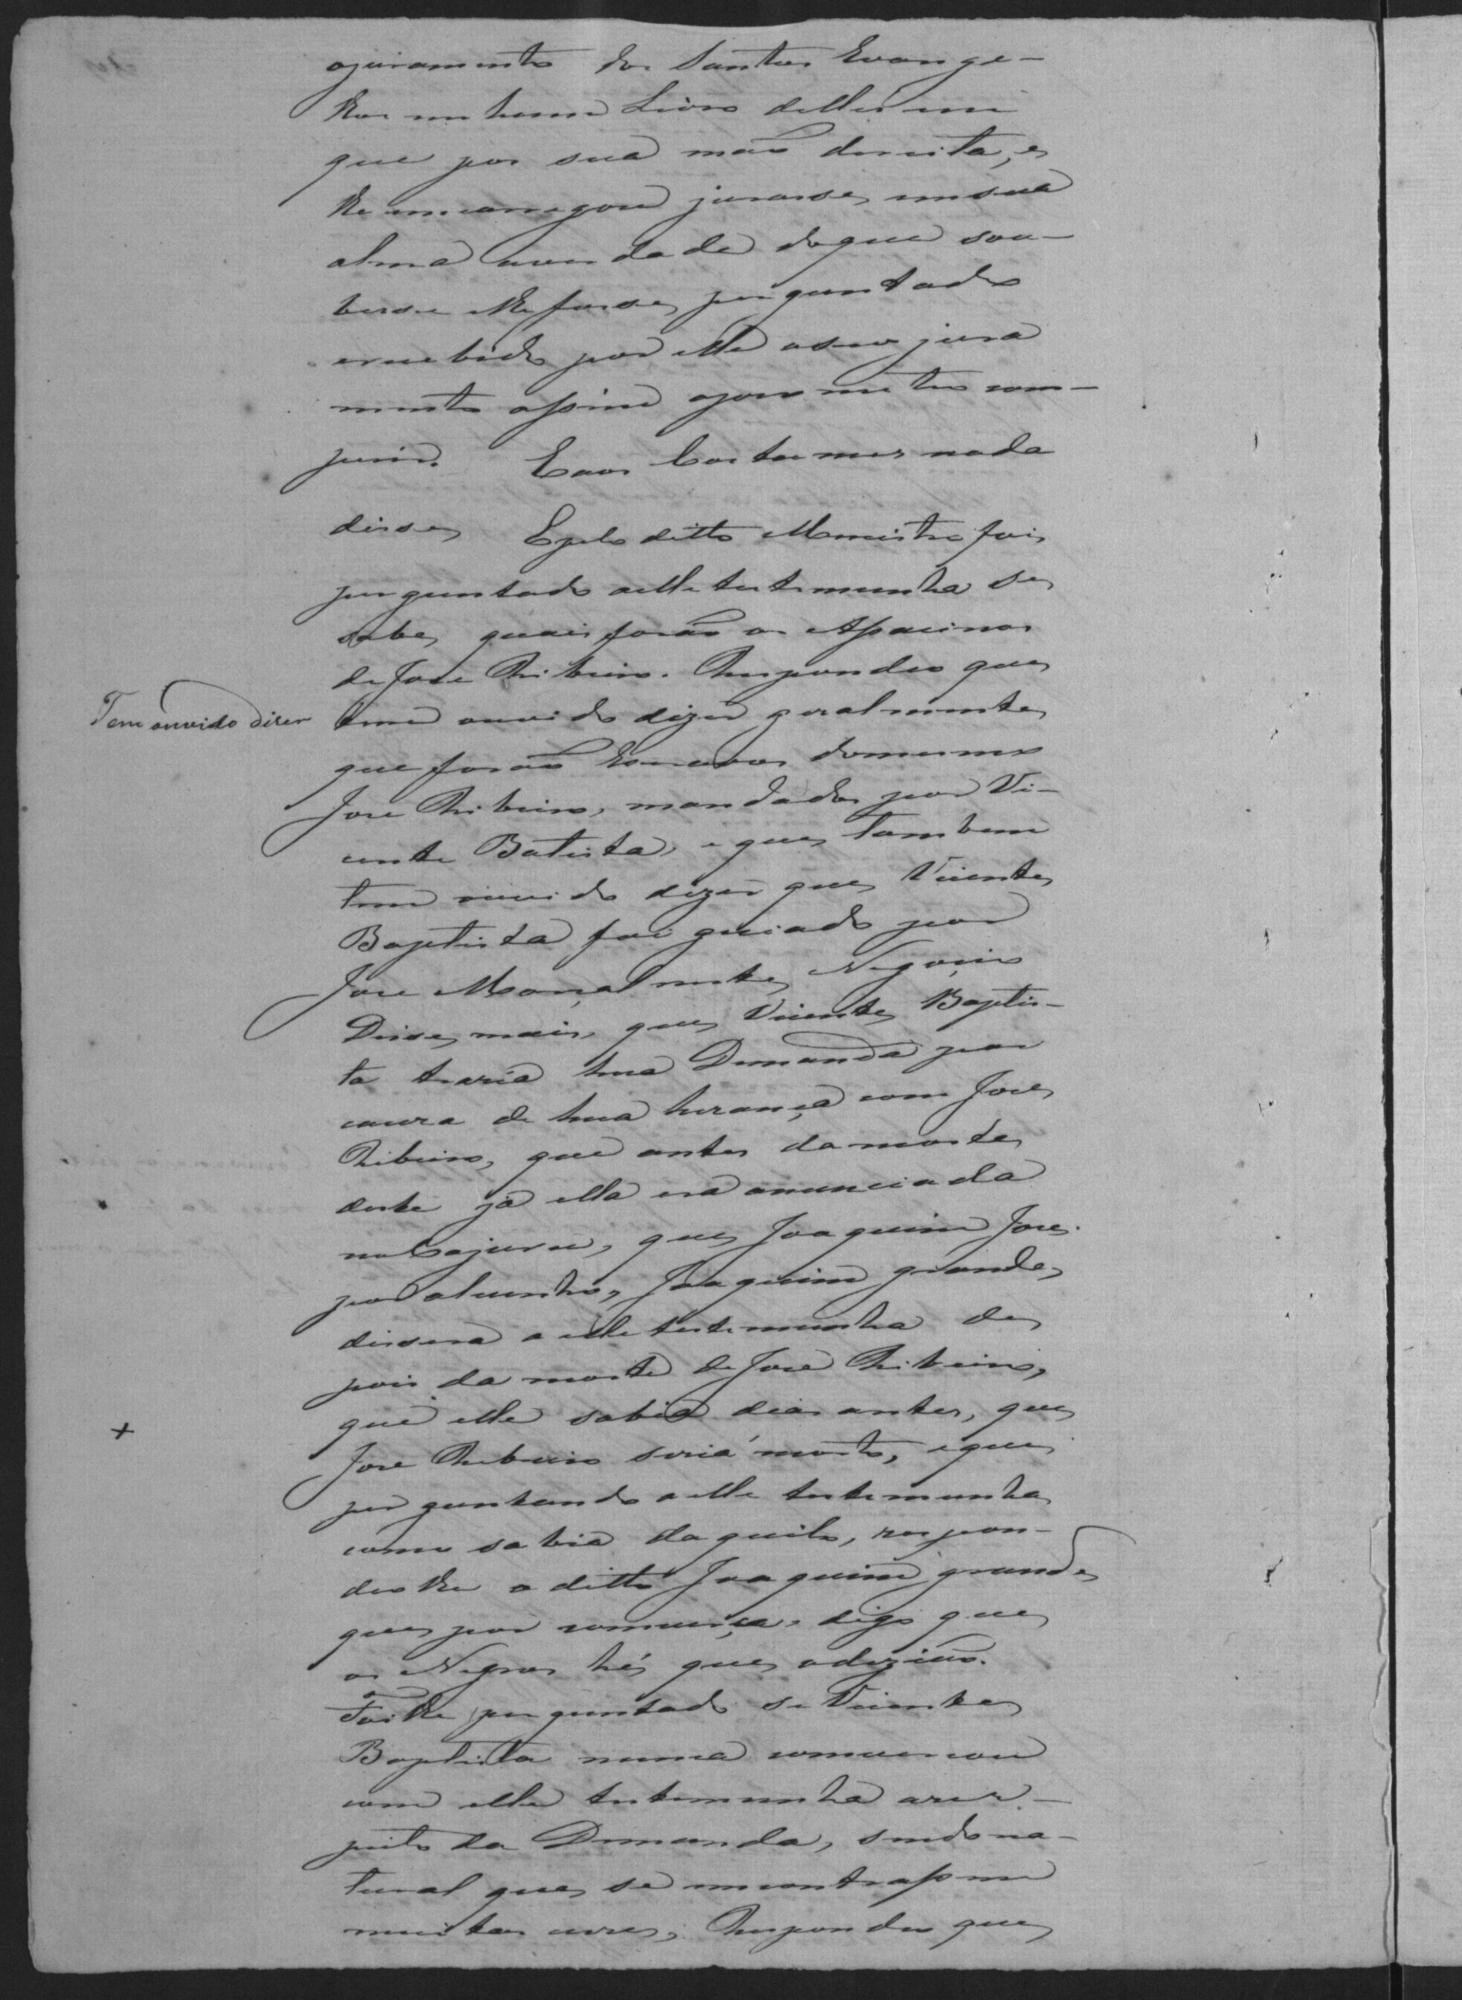 ojuramento dos Santos Evange-
lhos em hum Livro delles em
que pos sua maõ direita, e
lhe emcarregou jurasse em sua
alma averdade doque sou-
besse e lhe fosse perguntado
erecebido por elle oseo jura
mento assim oprometeo com-
prir. E aos Costumes nada
disse E pelo ditto Menistro foi
perguntado aelle testemunha se
sabe quais foraõ os Assacinos
de Jose Ribeiro. Respondeo que
tem ouvido dizer geralmente
Tem ouvido diser
que foraõ Escravos domesmo
Jose Ribeiro, mandados por Vi-
cente Batista, e que tambem
tem ouvido dizer que Vicente
Baptista foi guiado por
Jose
Disse mais, que Vicente Baptis-
ta traria hua Demanda por
causa de hua herança com Jose
Ribeiro, que antes da morte
deste já ella era anunciada
no Cajuru, que Joaquim Jose
por alcunha, Joaquim grande,
dissera a elle testemunha de
pois da morte de Jose Ribeiro,
que elle sabia dias antes, que
Jose Ribeiro seria morto, e que
perguntando aelle testemunha
como sabia daquilo, respon-
deo lhe o ditto Joaquim grande
que por comverça, digo que
os Negros hé que odiziaõ.
Foi lhe perguntado se Vicente
Baptista nunca comvercou
com elle testemunha arer-
peito da Demanda, sendo na-
tural que se emcontrassem
muitas vezes, Respondeo que